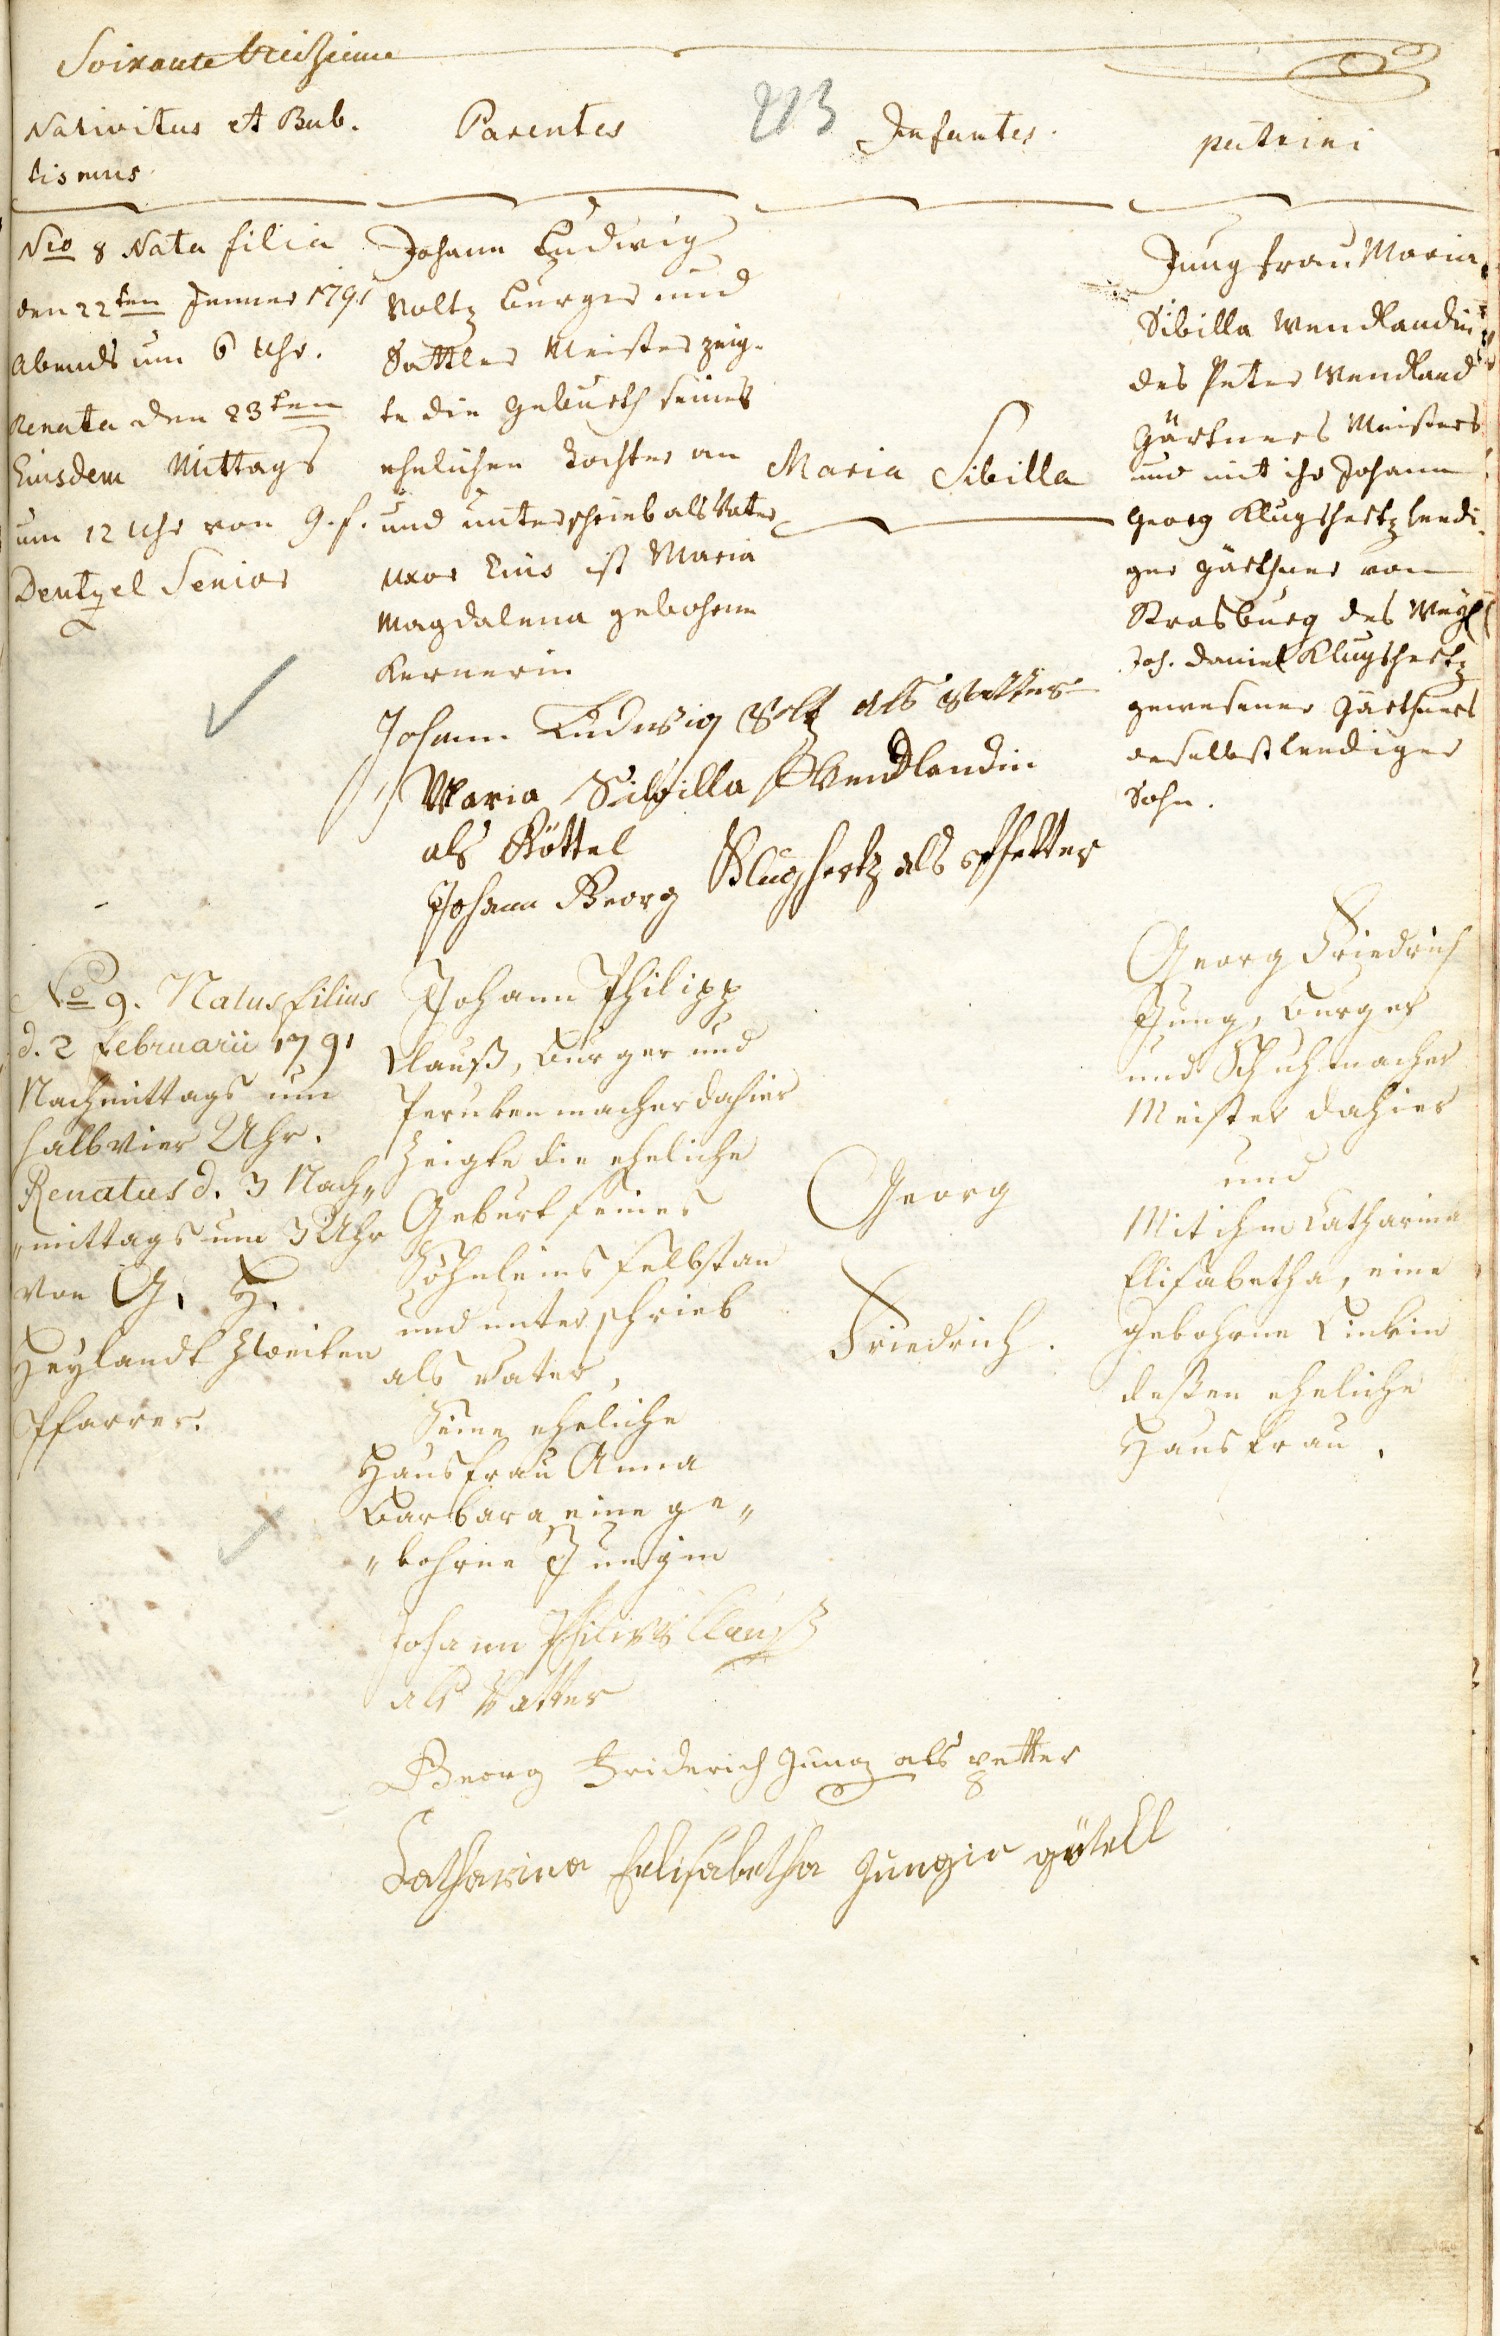 Soixante treizieme
213
Nativitas et Bab.
tismus
Parentes
Infantes.
patrini
Nro 8 Nata filia
den 22ten Jenner 1791
Abends um 6 Uhr.
Renata den 23ten
Eiusdem Mittags
um 12 Uhr von g. f.
Dentzel Senior
Johann Ludwig
Voltz burger und
Sattler Meister zeig-
te die geburth seines
ehelichen tochter an
und unterschrieb als Vater
uxor Eius ist Maria
Magdalena gebohrne
Kernerin
Maria Sibilla
Jungfrau Maria
Sibilla Wendlandin
des Peter Wendland
gärtners Meisters
und mit ihr Johann
Georg Klugshertz leedi
ger gärthner von
Strasburg des Weyl
Joh. Daniel Klugshertz
gewesener gärthners
daselbst leediger
Sohn.
Johann Ludwig Voltz als Vatter
Maria Sibilla Wendlandin
als Göttel
Johann Georg Klugshertz als Pfetter
No 9. Natus filius
d. 2 Februarii 1791
Nachmittags um
halb vier Uhr.
Renatus d. 3 Nach„
„mittags um 3 Uhr
von G. H.
Heylandt zweiten
Pfarrer.
Johann Philipp
Clauß, burger und
Perukenmacher dahier
zeigte die eheliche
Geburt seines
Söhnleins selbst an
und unterschrieb
als Vater,
Seine eheliche
Hausfrau Anna
Barbara eine ge„
„bohrne Jungin
Georg
Friedrich.
Georg Friedrich
Jung, burger
und Schuhmacher
Meister dahier
und
Mit ihm Catharina
Elisabetha, eine
gebohrne Linkin
deßen eheliche
Hausfrau.
Johann Philipp Clauß
als Vatter
Georg Friderich Jung als petter
Catharina Enlisabetha Jungin götell